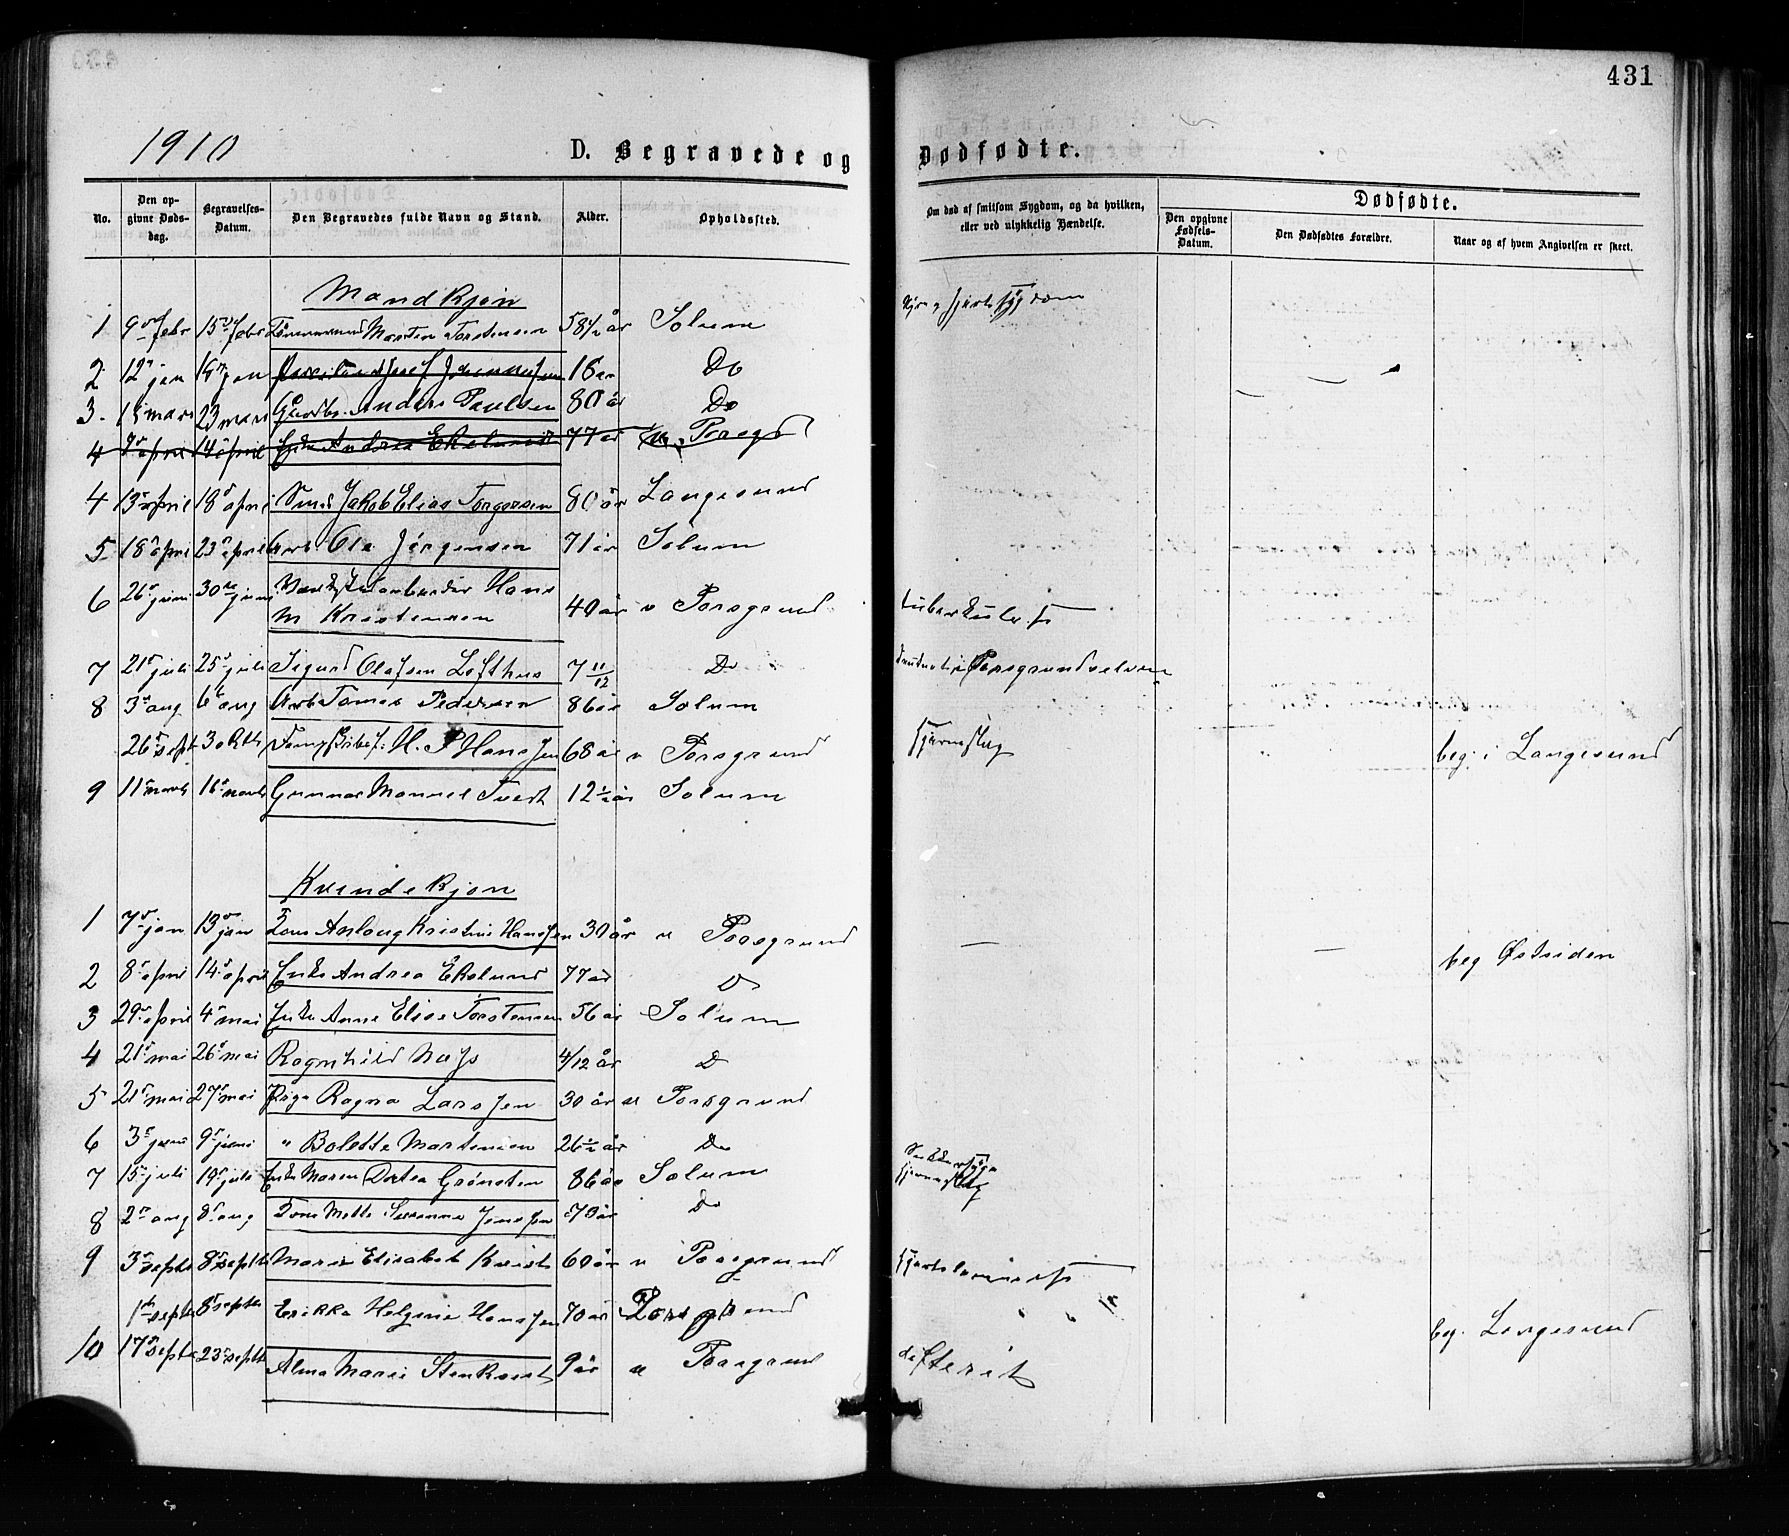 431
1910
D. Begravede og Dødfødte.
No.
Den opgivne Dødsdag.
Begravelses-Datum.
Den Begravedes fulde Navn og Stand.
Alder.
Opholdssted.
Om død af smitsom Sygdom, og da hvilken, eller ved ulykkelig Hændelse.
Dødfødte.
Den opgivne Fødsels-Datum.
Den Dødfødtes Forældre.
Naar og af hvem Angivelsen er skeet.
Mandkjøn
1 9 febr 15 febr Tømmermand Morten Torstensen 58 1/2 år Solum hjertesygdom
2 12 jan 19 jan 16 Do
3. 15 mars 23 mars Gårdbr. Anders Paulsen 80 år Do
4 9 april 14 april Enke Andrea Ekelund 77 år v. Porsgd
4 13 april 18 april Smed Jakob Elias Torgersen 80 år Langesund
5 18 april 23 april Arb. Ole Jørgensen 71 år Solum
6 26 juni 30 juni Hans M Kristensen 40 år v Porsgrund tuberkulose
7 21 juli 25 juli Sigurd Olafsen Lofthus 7 11/12 Do druknet i Porsgrundselven
8 3 aug 6 aug Arb Tomas Pedersen 86 år Solum
26 sept 3 oktb H. P Hanssen 68 år v Porsgrund hjerneslag beg. i Langesund
9 11 novb 16 novb Gunnar Manuel Tveit 12 1/2 år Solum
Kvindekjøn
1 7 jan 13 jan Kone Aslaug Kristine Hanssen 30 år v Porsgrund — — beg Østsiden
2 8 april 14 april Enke Andrea Ekelund 77 år D
3 29 april 4 mai Enke Anne Elise Torstensen 56 år Solum
4 21 mai 26 mai Ragnhild Næss 4/12 år D
5 21 mai 27 mai Pige Ragna Larssen 30 år v Porsgrund
6 3 juni 9 juni " Bolette Mortensen 26 1/2 år Do
7 15 juli 19 juli Enke Maren Dortea Grønsten 86 år Solum Sukkersyge
8 2 aug 8 aug Kone Mette Susanne Jenssen 73 år Do hjerneslag
9 3 septb 8 septb Marie Elisabet Kvist 60 år v Porsgrund
1 septb 8 septb Erikka Helgine Hanssen 70 år Porsgrund beg. Langesund
10 17 septb 23 septb Alma Marie Stenkvist 9 år v Porsgrund difterit